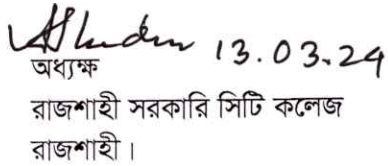 13.03.24
অধ্যক্ষ
রাজশাহী সরকারি সিটি কলেজ
রাজশাহী।